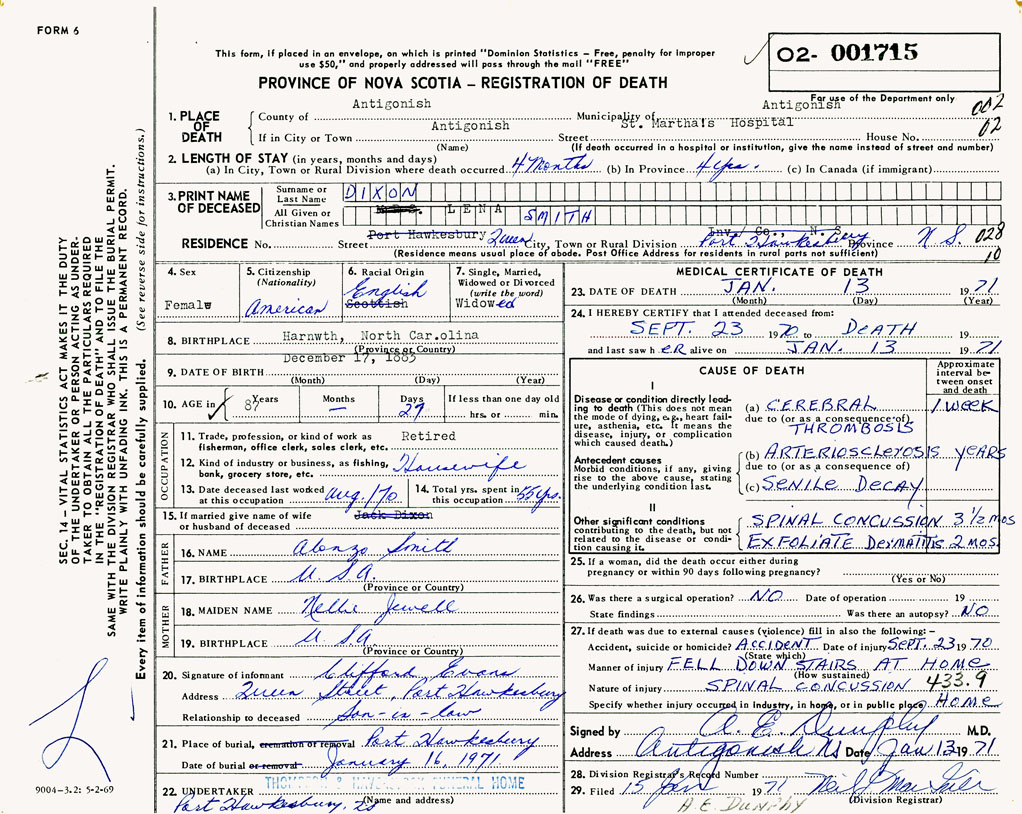 FORM 6
This form, if placed in an envelope, on which is printed "Dominion Statistics – Free, penalty for improper
use $50," and properly addressed will pass through the mail "FREE"
PROVINCE OF NOVA SCOTIA – REGISTRATION OF DEATH
02- 001715
For use of the Department only
002
02
SEC. 14 – VITAL STATISTICS ACT MAKES IT THE DUTY
OF THE UNDERTAKER OR PERSON ACTING AS UNDER-
TAKER TO OBTAIN ALL THE PARTICULARS REQUIRED
IN THE "REGISTRATION OF DEATH" AND TO FILE THE
SAME WITH THE DIVISION REGISTRAR WHO SHALL ISSUE THE BURIAL PERMIT.
WRITE PLAINLY WITH UNFADING INK. THIS IS A PERMANENT RECORD.
Every item of information should be carefully supplied. (See reverse side for instructions.)
1. PLACE OF DEATH
County of Antigonish Municipality of Antigonish
If in City or Town Antigonish Street St. Martha's Hospital House No.
(Name) (If death occurred in a hospital or institution, give the name instead of street and number)
2. LENGTH OF STAY (in years, months and days)
(a) In City, Town or Rural Division where death occurred 4 Months (b) In Province 4 yrs. (c) In Canada (if immigrant)
3. PRINT NAME OF DECEASED
Surname or Last Name DIXON
All Given or Christian Names Mrs. LENA SMITH
RESIDENCE No. Street Port Hawkesbury Queen City, Town or Rural Division Inv. Co., N. S. Port Hawkesbury Province N S. 028
(Residence means usual place of abode. Post Office Address for residents in rural parts not sufficient) 10
4. Sex
Female
5. Citizenship (Nationality)
American
6. Racial Origin
English
Scottish
7. Single, Married, Widowed or Divorced (write the word)
Widowed
8. BIRTHPLACE Harnwth, North Car.olina
(Province or Country)
9. DATE OF BIRTH December 17, 1883
(Month) (Day) (Year)
10. AGE in 87 Years Months – Days 27 If less than one day old hrs. or min.
OCCUPATION
11. Trade, profession, or kind of work as fisherman, office clerk, sales clerk, etc. Retired
12. Kind of industry or business, as fishing, bank, grocery store, etc. Housewife
13. Date deceased last worked at this occupation Aug./70 14. Total yrs. spent in this occupation 55 yrs.
15. If married give name of wife or husband of deceased Jack Dixon
FATHER
16. NAME Alonzo Smith
17. BIRTHPLACE U. S. A.
(Province or Country)
MOTHER
18. MAIDEN NAME Nellie Jewell
19. BIRTHPLACE U. S. A.
(Province or Country)
20. Signature of informant Clifford Evans
Address Queen Street, Port Hawkesbury
Relationship to deceased Son-in-law
21. Place of burial, cremation or removal Port Hawkesbury
Date of burial or removal January 16, 1971
22. UNDERTAKER FUNERAL HOME
Port Hawkesbury, NS (Name and address)
9004-3.2: 5-2-69
MEDICAL CERTIFICATE OF DEATH
23. DATE OF DEATH JAN. 13 1971
(Month) (Day) (Year)
24. I HEREBY CERTIFY that I attended deceased from:
SEPT. 23 1970 to DEATH 19
and last saw her alive on JAN. 13 1971
CAUSE OF DEATH
Approximate interval between onset and death
I
Disease or condition directly leading to death (This does not mean the mode of dying, e.g., heart failure, asthenia, etc. It means the disease, injury, or complication which caused death.)
(a) CEREBRAL 1 WEEK
due to (or as a consequence of)
THROMBOSIS
Antecedent causes
Morbid conditions, if any, giving rise to the above cause, stating the underlying condition last.
(b) ARTERIOSCLEROSIS YEARS
due to (or as a consequence of)
(c) SENILE DECAY
II
Other significant conditions contributing to the death, but not related to the disease or condition causing it.
SPINAL CONCUSSION 3 1/2 MOS
EXFOLIATE DERMATITIS 2 MOS.
25. If a woman, did the death occur either during pregnancy or within 90 days following pregnancy?
(Yes or No)
26. Was there a surgical operation? NO Date of operation 19
State findings Was there an autopsy? NO
27. If death was due to external causes (violence) fill in also the following: –
Accident, suicide or homicide? ACCIDENT Date of injury SEPT. 23 1970
(State which)
Manner of injury FELL DOWN STAIRS AT HOME
(How sustained)
Nature of injury SPINAL CONCUSSION 433.9
Specify whether injury occurred in industry, in home, or in public place HOME
Signed by A. E. Dunphy M.D.
Address Antigonish NS Date Jan 13 1971
28. Division Registrar's Record Number
29. Filed 15 Jan 1971
(Division Registrar)
A.E. DUNPHY